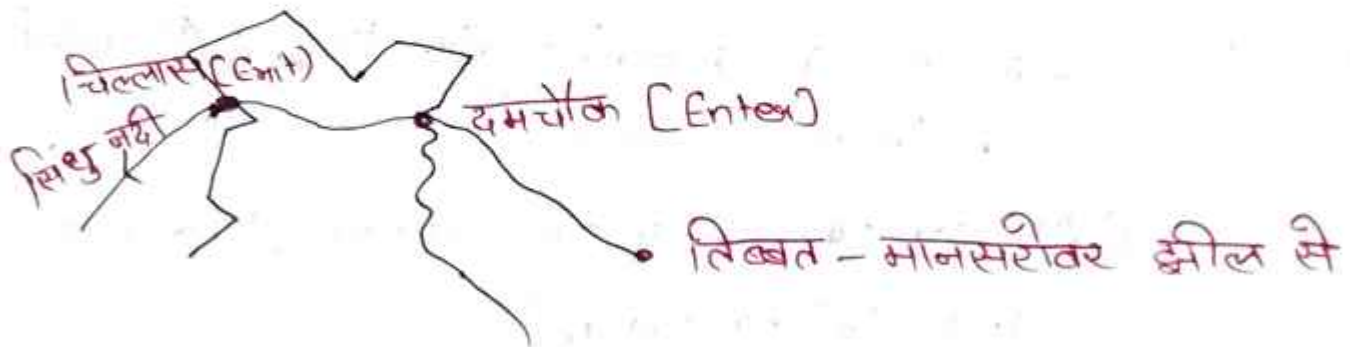 चिल्लास (Exit)
सिंधु नदी
दमचौक [Enter]
तिब्बत - मानसरोवर झील से